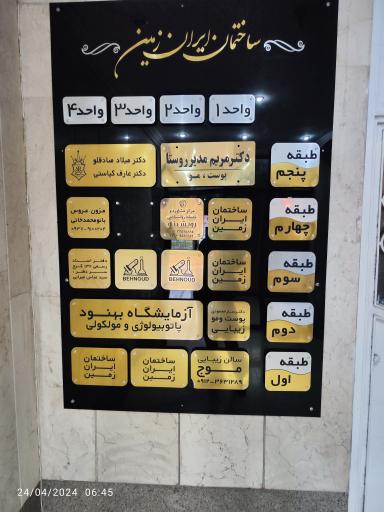 ساختمان ایران زمین
واحد ۱
واحد ۲
واحد ۳
واحد ۴
طبقه
پنجم
دکتر مریم مدیر روستا
پوست ، مو
دکتر میلاد صادقلو
دکتر عارف کیاستی
طبقه
چهارم
ساختمان
ایران
زمین
مزون عروس
طبقه
سوم
BEHNOUD
BEHNOUD
دفتر اسناد
طبقه
دوم
پوست و مو
زیبایی
آزمایشگاه بهنود
پاتوبیولوژی و مولکولی
طبقه
اول
سالن زیبایی
موج
۰۹۱۲-۳۶۳۱۲۸۹
ساختمان
ایران
زمین
ساختمان
ایران
زمین
24/04/2024 06:45